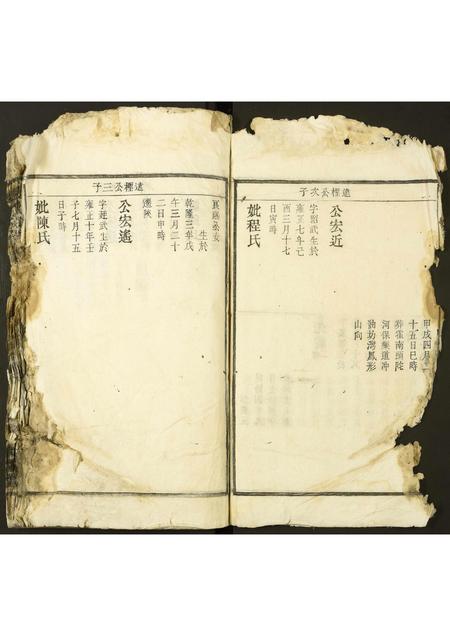 遠樫公次子
甲戌四月
十五日巳時
葬霍南頭陀
河保葉道冲
坳坊灣鳳形
山向
公宏近
字紹武生於
雍正七年己
酉三月十七
日寅時
妣程氏
遠樫公三子
生於
乾隆三年戊
午三月二十
二日申時
遷陝
公宏遙
字廷武生於
雍正十年壬
子七月十五
日子時
妣陳氏